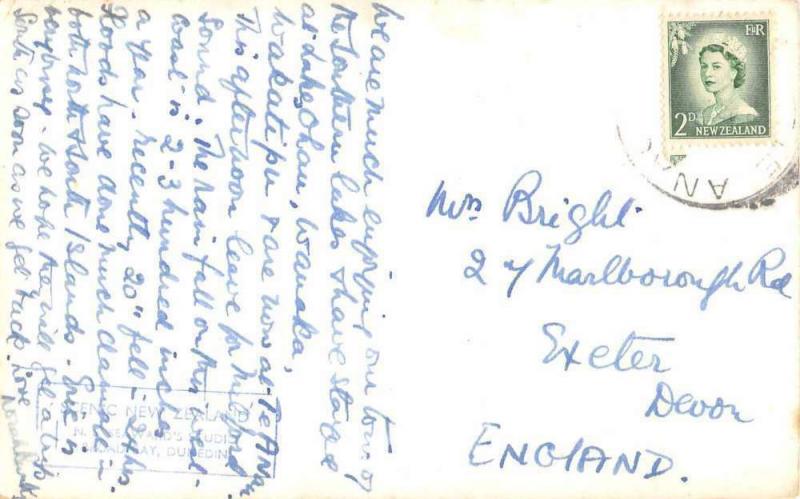 We are much enjoying our tour of
the Southern lakes & have stayed
at Lake Ohau, Wanaka,
Wakatipu & are now at Te Anau
This afternoon leave for Milford
Sound. The rainfall on this West
coast is 2-3 hundred inches
a year. Recently 20" fell - & this
floods have done much damage in
both North & South Islands. Eric is
- we hope they will get a trip
South as soon as we get back. Love
SCENIC NEW ZEALAND
N. SEAWARD'S STUDIO
BROADWAY, DUNEDIN
E II R
2D
NEW ZEALAND
AN
Mrs Bright
27 Marlborough Rd
Exeter
Devon
ENGLAND.